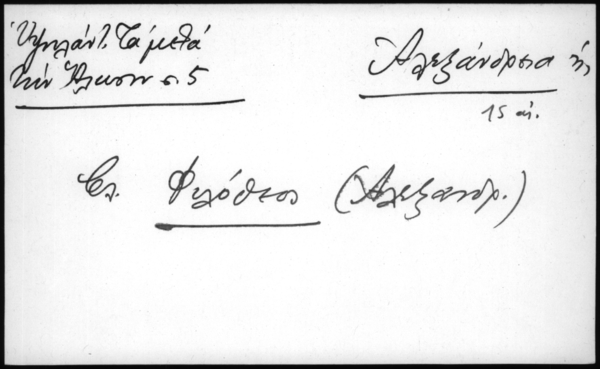 Ὑψηλάντ. Τὰ μετὰ
τὴν Ἅλωσιν σ. 5
Ἀλεξάνδρεια ἡ
15 αἰ.
Βλ. Φιλόθεος (Ἀλεξανδρ.)